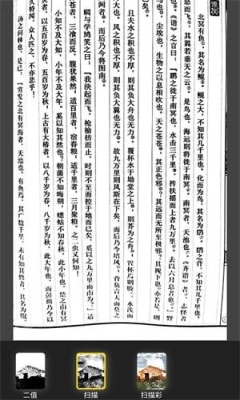 北冥有鱼，其名为鲲。鲲之大，不知其几千里也；化而为鸟，其名为鹏。鹏之背，不知其几千里也；
怒而飞，其翼若垂天之云。是鸟也，海运则将徙于南冥。南冥者，天池也。《齐谐》者，志怪者
也。《谐》之言曰：“鹏之徙于南冥也，水击三千里，抟扶摇而上者九万里，去以六月息者也。”
马也，尘埃也，生物之以息相吹也。天之苍苍，其正色邪？其远而无所至极邪？其视下也，亦若是
且夫水之积也不厚，则其负大舟也无力。覆杯水于坳堂之上，则芥为之舟，置杯焉则胶，水浅而
风之积也不厚，则其负大翼也无力。故九万里则风斯在下矣，而后乃今培风；背负青天而莫之
而后乃今将图南。
蜩与学鸠笑之曰：“我决起而飞，抢榆枋而止，时则不至而控于地而已矣，奚以之九万里而南为？”适
苍者，三飡而反，腹犹果然；适百里者，宿舂粮；适千里者，三月聚粮。之二虫又何知
小知不及大知，小年不及大年。奚以知其然也？朝菌不知晦朔，蟪蛄不知春秋，此小年也。楚之南有冥
者，以五百岁为春，五百岁为秋；上古有大椿者，以八千岁为春，八千岁为秋。此大年也。而彭祖乃今以
久特闻，众人匹之，不亦悲乎！
汤之问棘也是已：“穷发之北有冥海者，天池也。有鱼焉，其广数千里，未有知其修者，其名为
二值
扫描
扫描彩